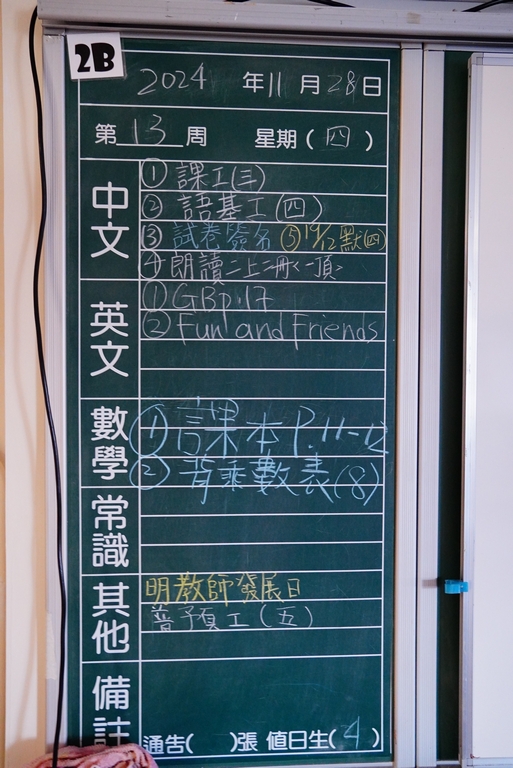 2B
2024 年11月28日
第13周 星期(四)
中文
①課工(三)
②語基工(四)
③試卷簽名 ⑤19/12默(四)
④朗讀二上二冊
英文
①GBp.17
②Fun and Friends
數學
①課本P.11-12
②背乘數表(8)
常識
其他
明教師發展日
普預工(五)
備註
通告( )張 值日生(4)